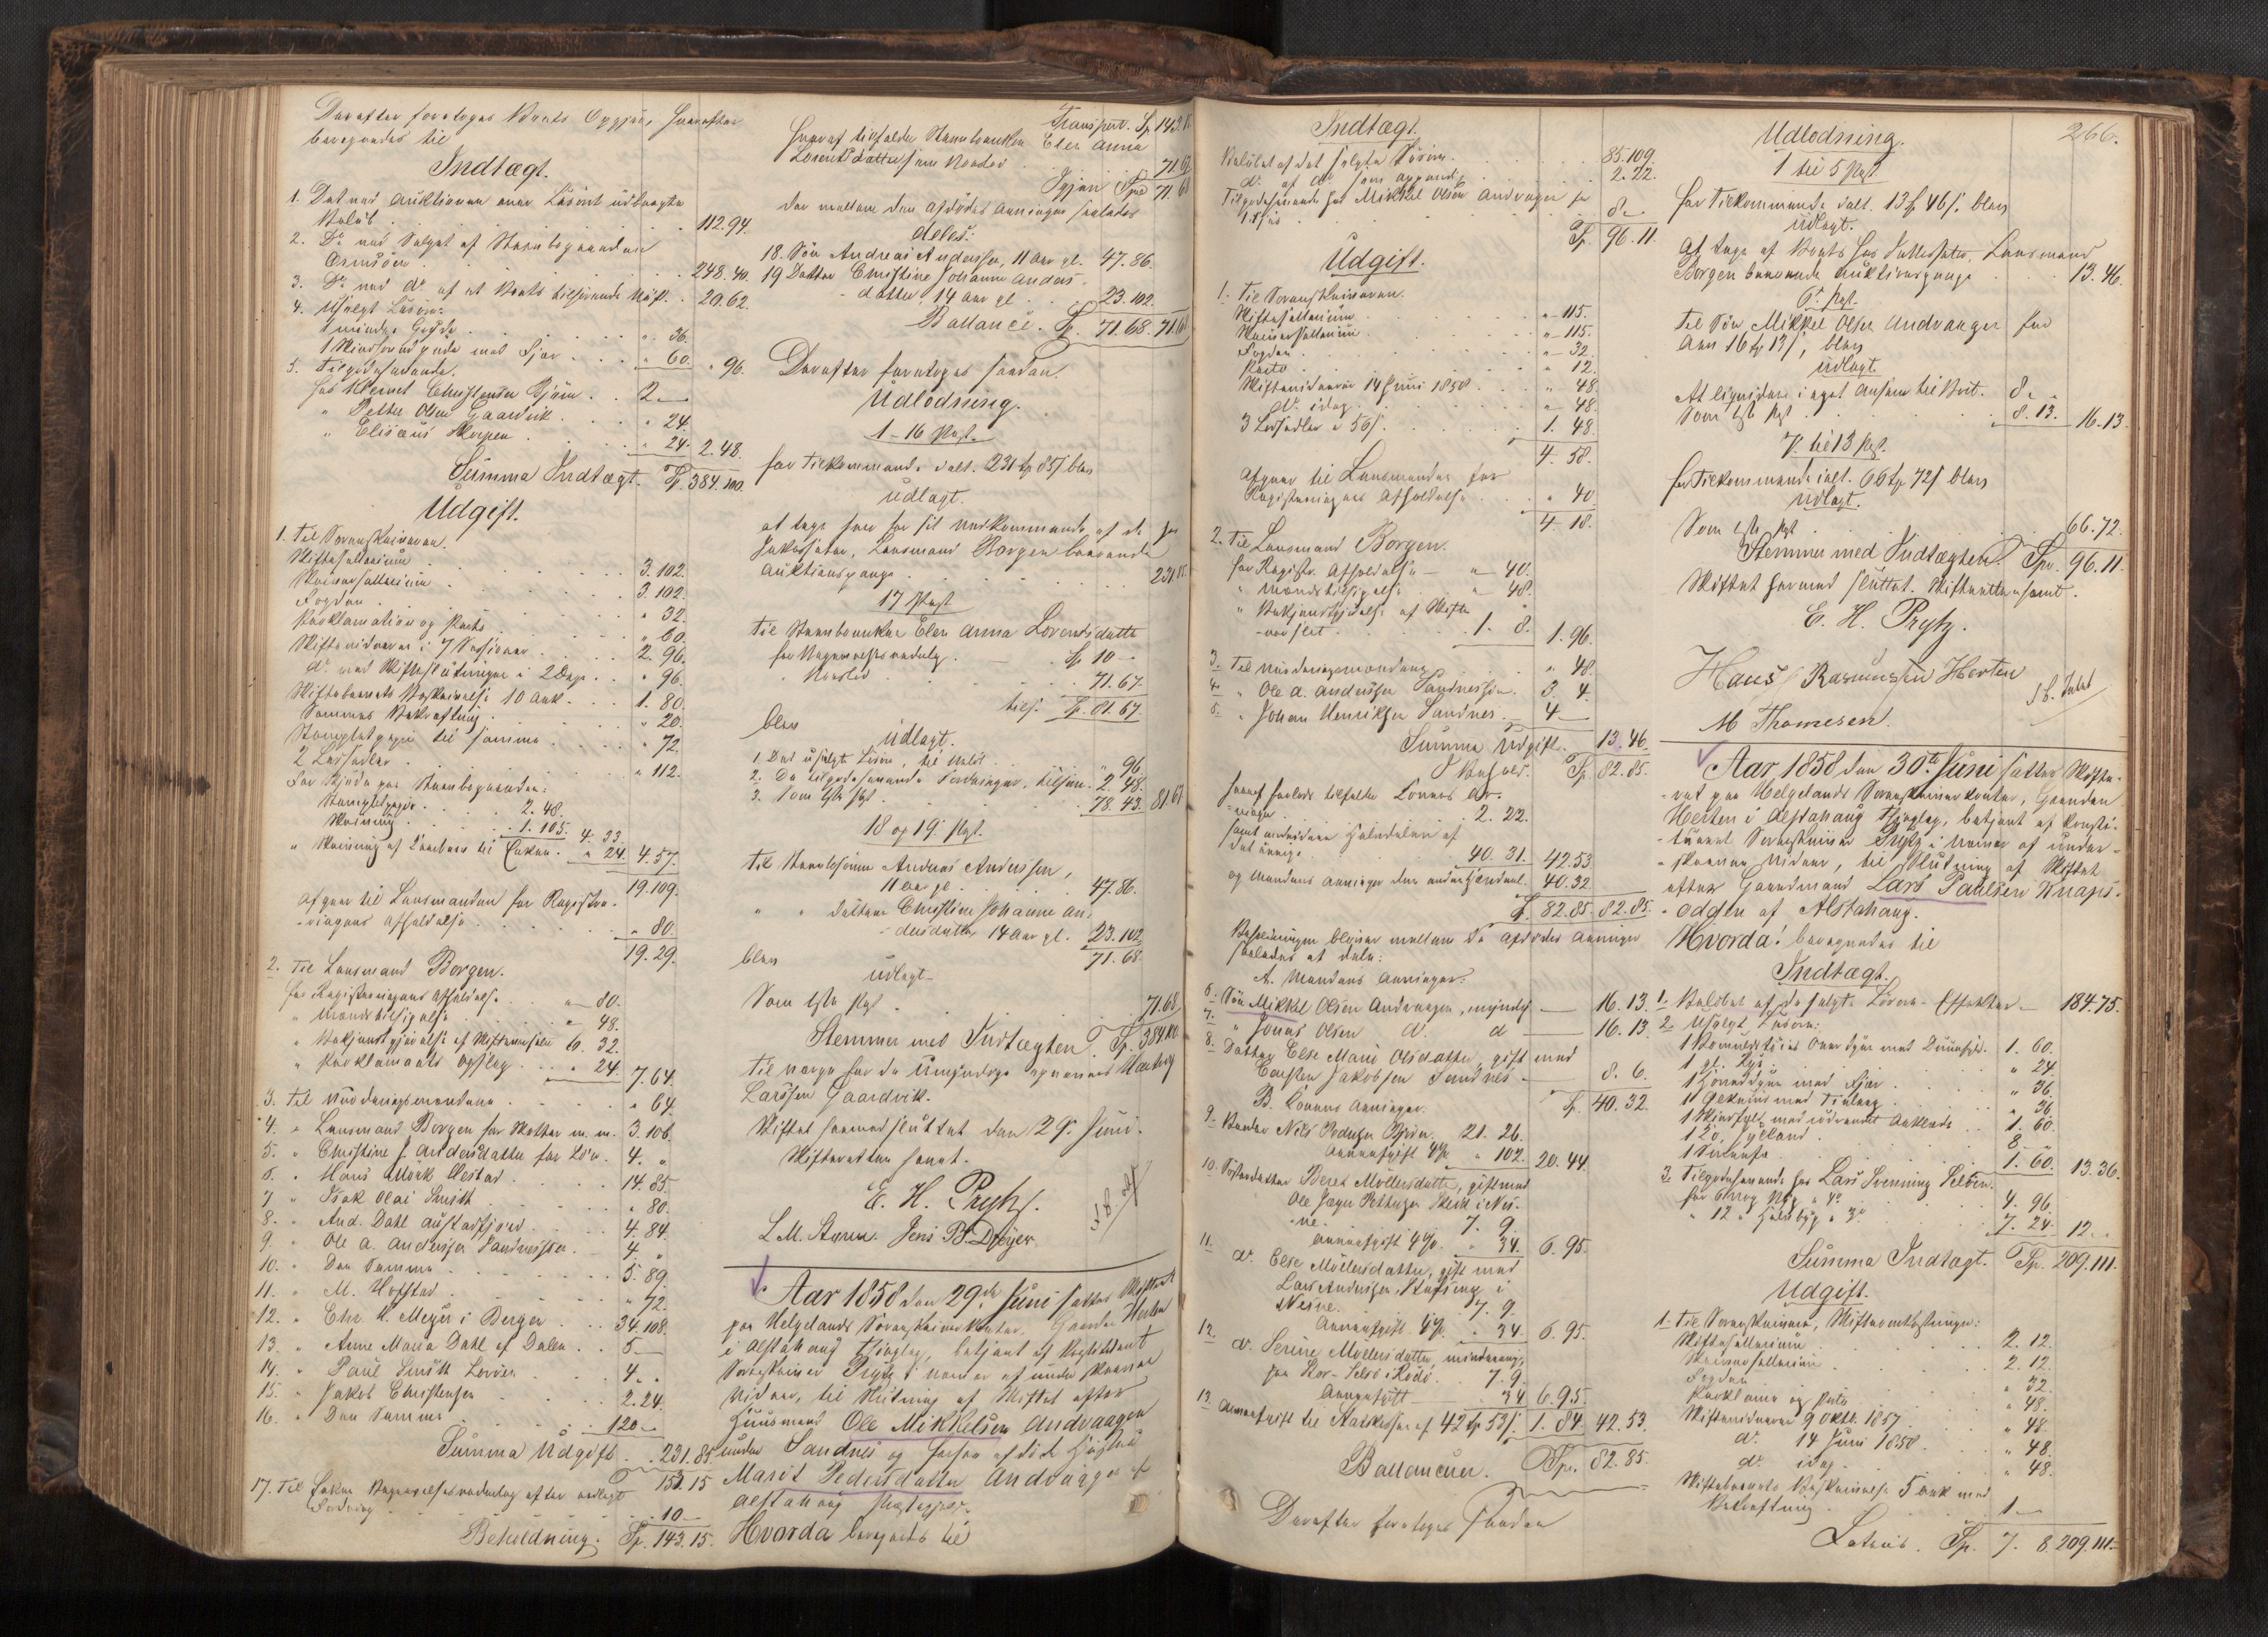 Derefter foretoges Boets Opgjør, hvorefter
beregnedes til
Indtægt.
1. Det ved Auktionen over Løsøret udbragte
Beløb . 112.94.
2. Do ved Salget af Stervbogaarden
. 248.40.
3. Do ved do af et Boets tilhørende Nøst. 20.62.
4. Usolgt Løsøre:
1 mindre Gryde . " 36.
1 med Fjær . . " 60. " 96.
5. Tilgodehavende.
hos Klemet Christensen Bjørn . . 2.—
" Petter Olsen Gaardvik . " 24.
" Elisæus Skorpen . " 24. 2.48.
Summa Indtægt. Sp. 384.100.
Udgift.
1. Til Sorenskriveren.
Skiftesallarium . 3.102.
Skriversallarium . 3.102.
Fogden . " 32.
Proklamation og Porto . " 60.
Skiftevidnerne i 7 Sessioner . 2.96.
do ved Skifteslutningen i 2 Dage . " 96.
Skiftebrevets Beskrivelse 10 Ark . 1.80.
Sammes Bekræftning . " 20.
Stempletpapir til samme . " 72.
2 Læssedler . " 112.
For Skjøde paa Stervbogaarden:
Stempletpapir . 2.48.
Skrivning . 1.105. 4.33.
" Skrivning af til Enken . " 24. 4.57.
19.109.
Afgaar til Lensmanden for Registre-
ringens Afholdelse . " 80.
19.29.
2. Til Lensmand Borgen.
for Registreringens Afholdelse . " 80.
" Mænds Tilsigelse . " 48.
" Bekjendtgjørelse af Skiftesamlin 6. 32.
" Proklamaets Opslag . " 24. 7.64.
3. Til Vurderingsmændene . " 64.
4. " Lensmand Borgen for Skatter m. m. 3.106.
5. " Christine J. Andersdatter for Løn . 4. "
6. " Hans Mørk Olestad . 14.85.
7. " Isak Olai Smith . " 80.
8. " And. Dahl Austadfjord . 4.84.
9. " Ole A. Andersen Sandnessjøen . 4. "
10. " Den Samme . 5.89.
11. " M. Hofstad . " 72.
12. " Chr. K. Meyer i Bergen . 34.108.
13. " Anne Maria Dahl af Dalen . 5 —
14. " Paul Smith Lervig . 4. "
15. " Jakob Christensen . 2.24.
16. " Den Samme . 120 —
Summa Udgift . 231.85.
153.15
17. Til Enken Begravelsesvederlag efter nedlagt
Fordring . 10 —
Beholdning. Sp. 143.15.
Transport. Sp. 143.15
Heraf tilfalder Stervboenken Elen Anna
Lorentsdatter som Boeslod . 71.67
Igjen Spd 71.68
der mellem den Afdødes Arvinger saaledes
deles:
18. Søn Andreas Andersen, 11 Aar gl. 47.86.
19 Datter Christine Johanne Anders-
datter, 14 Aar gl . 23.102.
Ballance. Sp. 71.68. 71.68
Derefter foretoges saadan
Udlodning.
1–16 Post.
For Tilkommende ialt. 231 Sp 85 s blev
udlagt.
at tage hver for sit Vedkommende af de hos
Inkassator, Lensmand Borgen beroende
Auktionspenge . 231.85
17 Post
Til Stervboenken Elen Anna Lorentsdatter
for Begravelsesvederlag. — Sp 10 —
" Boeslod . 71.67
tils. Sp. 81.67
blev
udlagt.
1. Det usolgte Løsøre, til Værdi . " 96
2. De tilgodehavende Fordringer, tilsam. 2.48.
3. Som 1ste Post . 78.43. 81.67
18 og 19. Post.
Til Stervbosønnen Andreas Andersen,
11 Aar gl . 47.86.
" " datteren Christine Johanne An-
dersdatter 14 Aar gl. 23.102
71.68.
blev
udlagt
Som 1ste Post . 71.68.
Stemmer med Indtægten. Sp. 384.100.
Til Værge for de Umyndige opnævnes
Larssen Gaardvik.
Skiftet hermed sluttet den 29. Juni.
Skifteretten hævet.
E. H. Prytz.
L. M. Jens B. Dreyer
Aar 1858 den 29de Juni sattes Skifteret
paa Helgelands Sorenskriverkontor, Gaarden Herten
i Alstahaug Thinglag, betjent af konstitueret
Sorenskriver Prytz i Nærvær af underskrevne
Vidner, til Slutning af Skiftet efter
Huusmand Ole Mikkelsen Andvaagen
under Sandnes og hersen afdøde Hustru
Marit Pedersdatter Andvaagen af
Alstahaug Præstegjeld.
Hvorda beregnedes til
266.
Indtægt.
Beløbet af det solgte Løsøre . 85.109.
do af do . 2.22.
Tilgodehavende hos Mikkel Olsen Andvaagen for
. 8 —
Sp. 96.11.
Udgift.
1. Til Sorenskriveren.
Skiftesallarium . " 115.
Skriversallarium . " 115.
Fogden . " 32.
Porto . " 12.
Skiftevidnerne 14 Juni 1858 . " 48.
do idag . " 48.
3 Læssedler à 56 s . 1. 48.
4. 58.
Afgaar til Lensmanden for
Registreringens Afholdelse . " 40
4. 18.
2. Til Lensmand Borgen.
for Registr. Afholdelse — " 40.
" Mændstilsigelse . " 48.
" Bekjendtgjørelse af Skifte-
1. 8. 1. 96.
3. Til Vurderingsmændene . " 48.
4. " Ole A. Andersen Sandnessjøen. 3. 4.
5. " Johan Henriksen Sandnes . 4 —
Summa Udgift. 13.46.
Behold. Sp. 82.85.
Heraf forlods tilfalder Konens Ar-
vinger . 2. 22.
samt endvidere Halvdelen af
det øvrige . 40. 31. 42.53
og Mandens Arvinger den anden Halvdeel. 40.32.
Sp. 82.85. 82.85.
Beholdningen bliver mellem de Afdødes Arvinger
saaledes at dele:
A. Mandens Arvinger.
6. Søn Mikkel Olsen Andvaagen, myndig — 16.13.
7. " Jonas Olsen do. do — 16.13.
8. Datter Else Marie Olsdatter, gift med
Jakobsen Sandnes — 8. 6.
Sp. 40.32.
B. Konens Arvinger.
9. Broder Nils Pedersen Bjørn. 21. 26.
Arveafgift 4 % " 102. 20.44.
10. Søsterdatter Beret Møllersdatter, gift med
Ole Pettersen i Nes-
ne. 7. 9.
Arveafgift 4 %. " 34. 6. 95.
11. do. Else Møllersdatter, gift med
Lars Andersen, i
Nesne. 7. 9.
Arveafgift 4 %. " 34. 6. 95.
12. do. Serine Møllersdatter, mindreaarig,
paa Selsø i Rødø. 7. 9.
Arveafgift — 34 6. 95.
13. Arveafgift til Statskassen af 42 Sp 53 s. 1. 84. 42.53.
Ballancerer. Sp. 82.85.
Derefter foretoges saadan
Udlodning.
1 til 5 Post
For Tilkommende ialt. 13 Sp 46 s. blev
udlagt.
At tage af Boets hos Inkassator, Lensmand
Borgen beroende Auktionspenge . 13.46.
6te Post.
Til Søn Mikkel Olsen Andvaagen for
Arv 16 Sp 13 s, blev
udlagt
At liqvidere i eget Ansvar til Boet. 8. "
Som 1ste Post . 8.13. 16.13.
7. til 13 Post.
For Tilkommende ialt. 66 Sp 72 s blev
udlagt.
Som 1ste Post . 66.72.
Stemmer med Indtægten. Sp. 96.11.
Skiftet hermed sluttet. Skifteretten hævet.
E. H. Prytz.
Hans Rasmussen Herten
M Thomesen.
Aar 1858 den 30te Juni sattes Skifte-
ret paa Helgelands Sorenskriverkontor, Gaarden
Herten i Alstahaug Thinglag, betjent af konsti-
tueret Sorenskriver Prytz i Nærvær af under-
skrevne Vidner, til Slutning af Skiftet
efter Gaardmand Lars Paulsen Knaps-
odden af Alstahaug.
Hvorda! beregnedes til
Indtægt.
1. Beløbet af de solgte Løsøre-Effekter — 184.75.
2. Usolgt Løsøre:
1 med 1. 60.
. " 24.
med Fjær . " 36.
. " 36
1 med . 1. 60.
. 8 "
. 1. 60. 13.36.
3. Tilgodehavende hos Lars Svenning Selvær.
for 6 Byg . 4. 96.
" 12 " . 7. 24 12. "
Summa Indtægt. Sp. 209.111.
Udgift.
1. Til Sorenskriveren, Skifteomkostninger:
Skiftesallarium . 2. 12.
Skriversallarium . 2. 12.
Fogden . " 32.
Proklama og Porto . " 48.
Skiftevidnerne 9 Oktb. 1857 . " 48.
do. 14 Juni 1858. " 48.
do. idag . " 48.
Skiftebrevets Beskrivelse 5 Ark med
Bekræftning . 1 —
Lateris. Sp. 7. 8. 209.111.